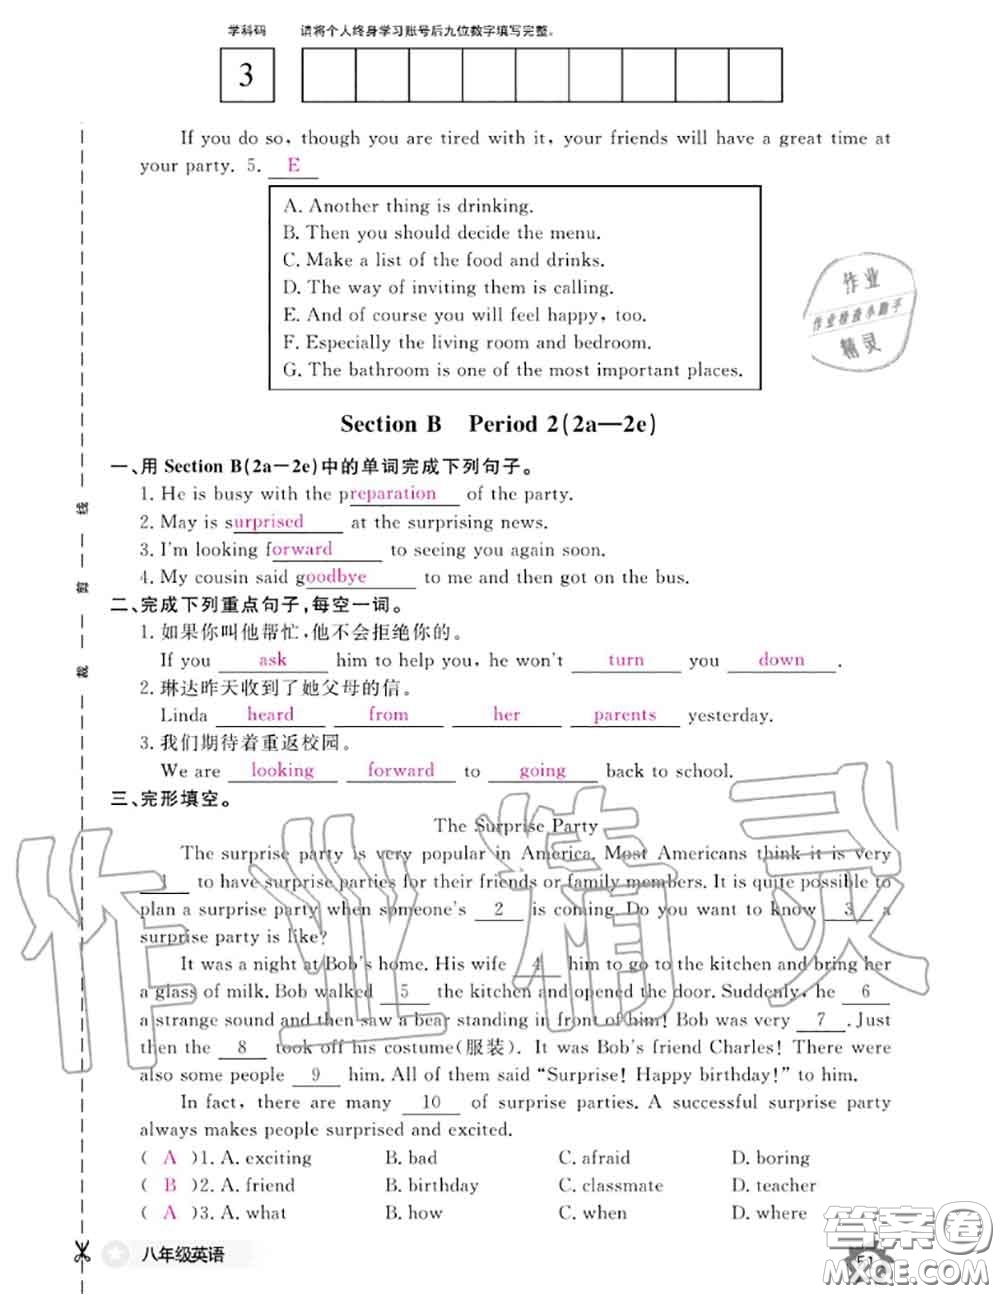 学科码 请将个人终身学习账号后九位数字填写完整。
3
If you do so, though you are tired with it, your friends will have a great time at
your party. 5. E
A. Another thing is drinking.
B. Then you should decide the menu.
C. Make a list of the food and drinks.
D. The way of inviting them is calling.
E. And of course you will feel happy, too.
F. Especially the living room and bedroom.
G. The bathroom is one of the most important places.
作业
作业检查小助手
精灵
Section B Period 2(2a—2e)
一、用 Section B(2a—2e)中的单词完成下列句子。
1. He is busy with the preparation of the party.
2. May is surprised at the surprising news.
3. I'm looking forward to seeing you again soon.
4. My cousin said goodbye to me and then got on the bus.
二、完成下列重点句子,每空一词。
1. 如果你叫他帮忙,他不会拒绝你的。
If you ask him to help you, he won't turn you down .
2. 琳达昨天收到了她父母的信。
Linda heard from her parents yesterday.
3. 我们期待着重返校园。
We are looking forward to going back to school.
三、完形填空。
The Surprise Party
The surprise party is very popular in America. Most Americans think it is very
1 to have surprise parties for their friends or family members. It is quite possible to
plan a surprise party when someone's 2 is coming. Do you want to know 3 a
surprise party is like?
It was a night at Bob's home. His wife 4 him to go to the kitchen and bring her
a glass of milk. Bob walked 5 the kitchen and opened the door. Suddenly, he 6
a strange sound and then saw a bear standing in front of him! Bob was very 7 . Just
then the 8 took off his costume(服装). It was Bob's friend Charles! There were
also some people 9 him. All of them said "Surprise! Happy birthday!" to him.
In fact, there are many 10 of surprise parties. A successful surprise party
always makes people surprised and excited.
( A )1. A. exciting B. bad C. afraid D. boring
( B )2. A. friend B. birthday C. classmate D. teacher
( A )3. A. what B. how C. when D. where
线 剪 裁
作业精灵
八年级英语
51
答案圈
MXQE.COM